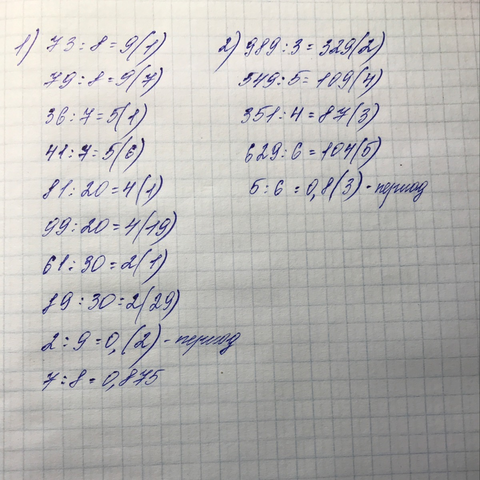 1) 73 : 8 = 9(1)
79 : 8 = 9(7)
36 : 7 = 5(1)
41 : 7 = 5(6)
81 : 20 = 4(1)
99 : 20 = 4(19)
61 : 30 = 2(1)
89 : 30 = 2(29)
2 : 9 = 0,(2) - период
7 : 8 = 0,875
2) 989 : 3 = 329(2)
549 : 5 = 109(4)
351 : 4 = 87(3)
629 : 6 = 104(5)
5 : 6 = 0,8(3) - период